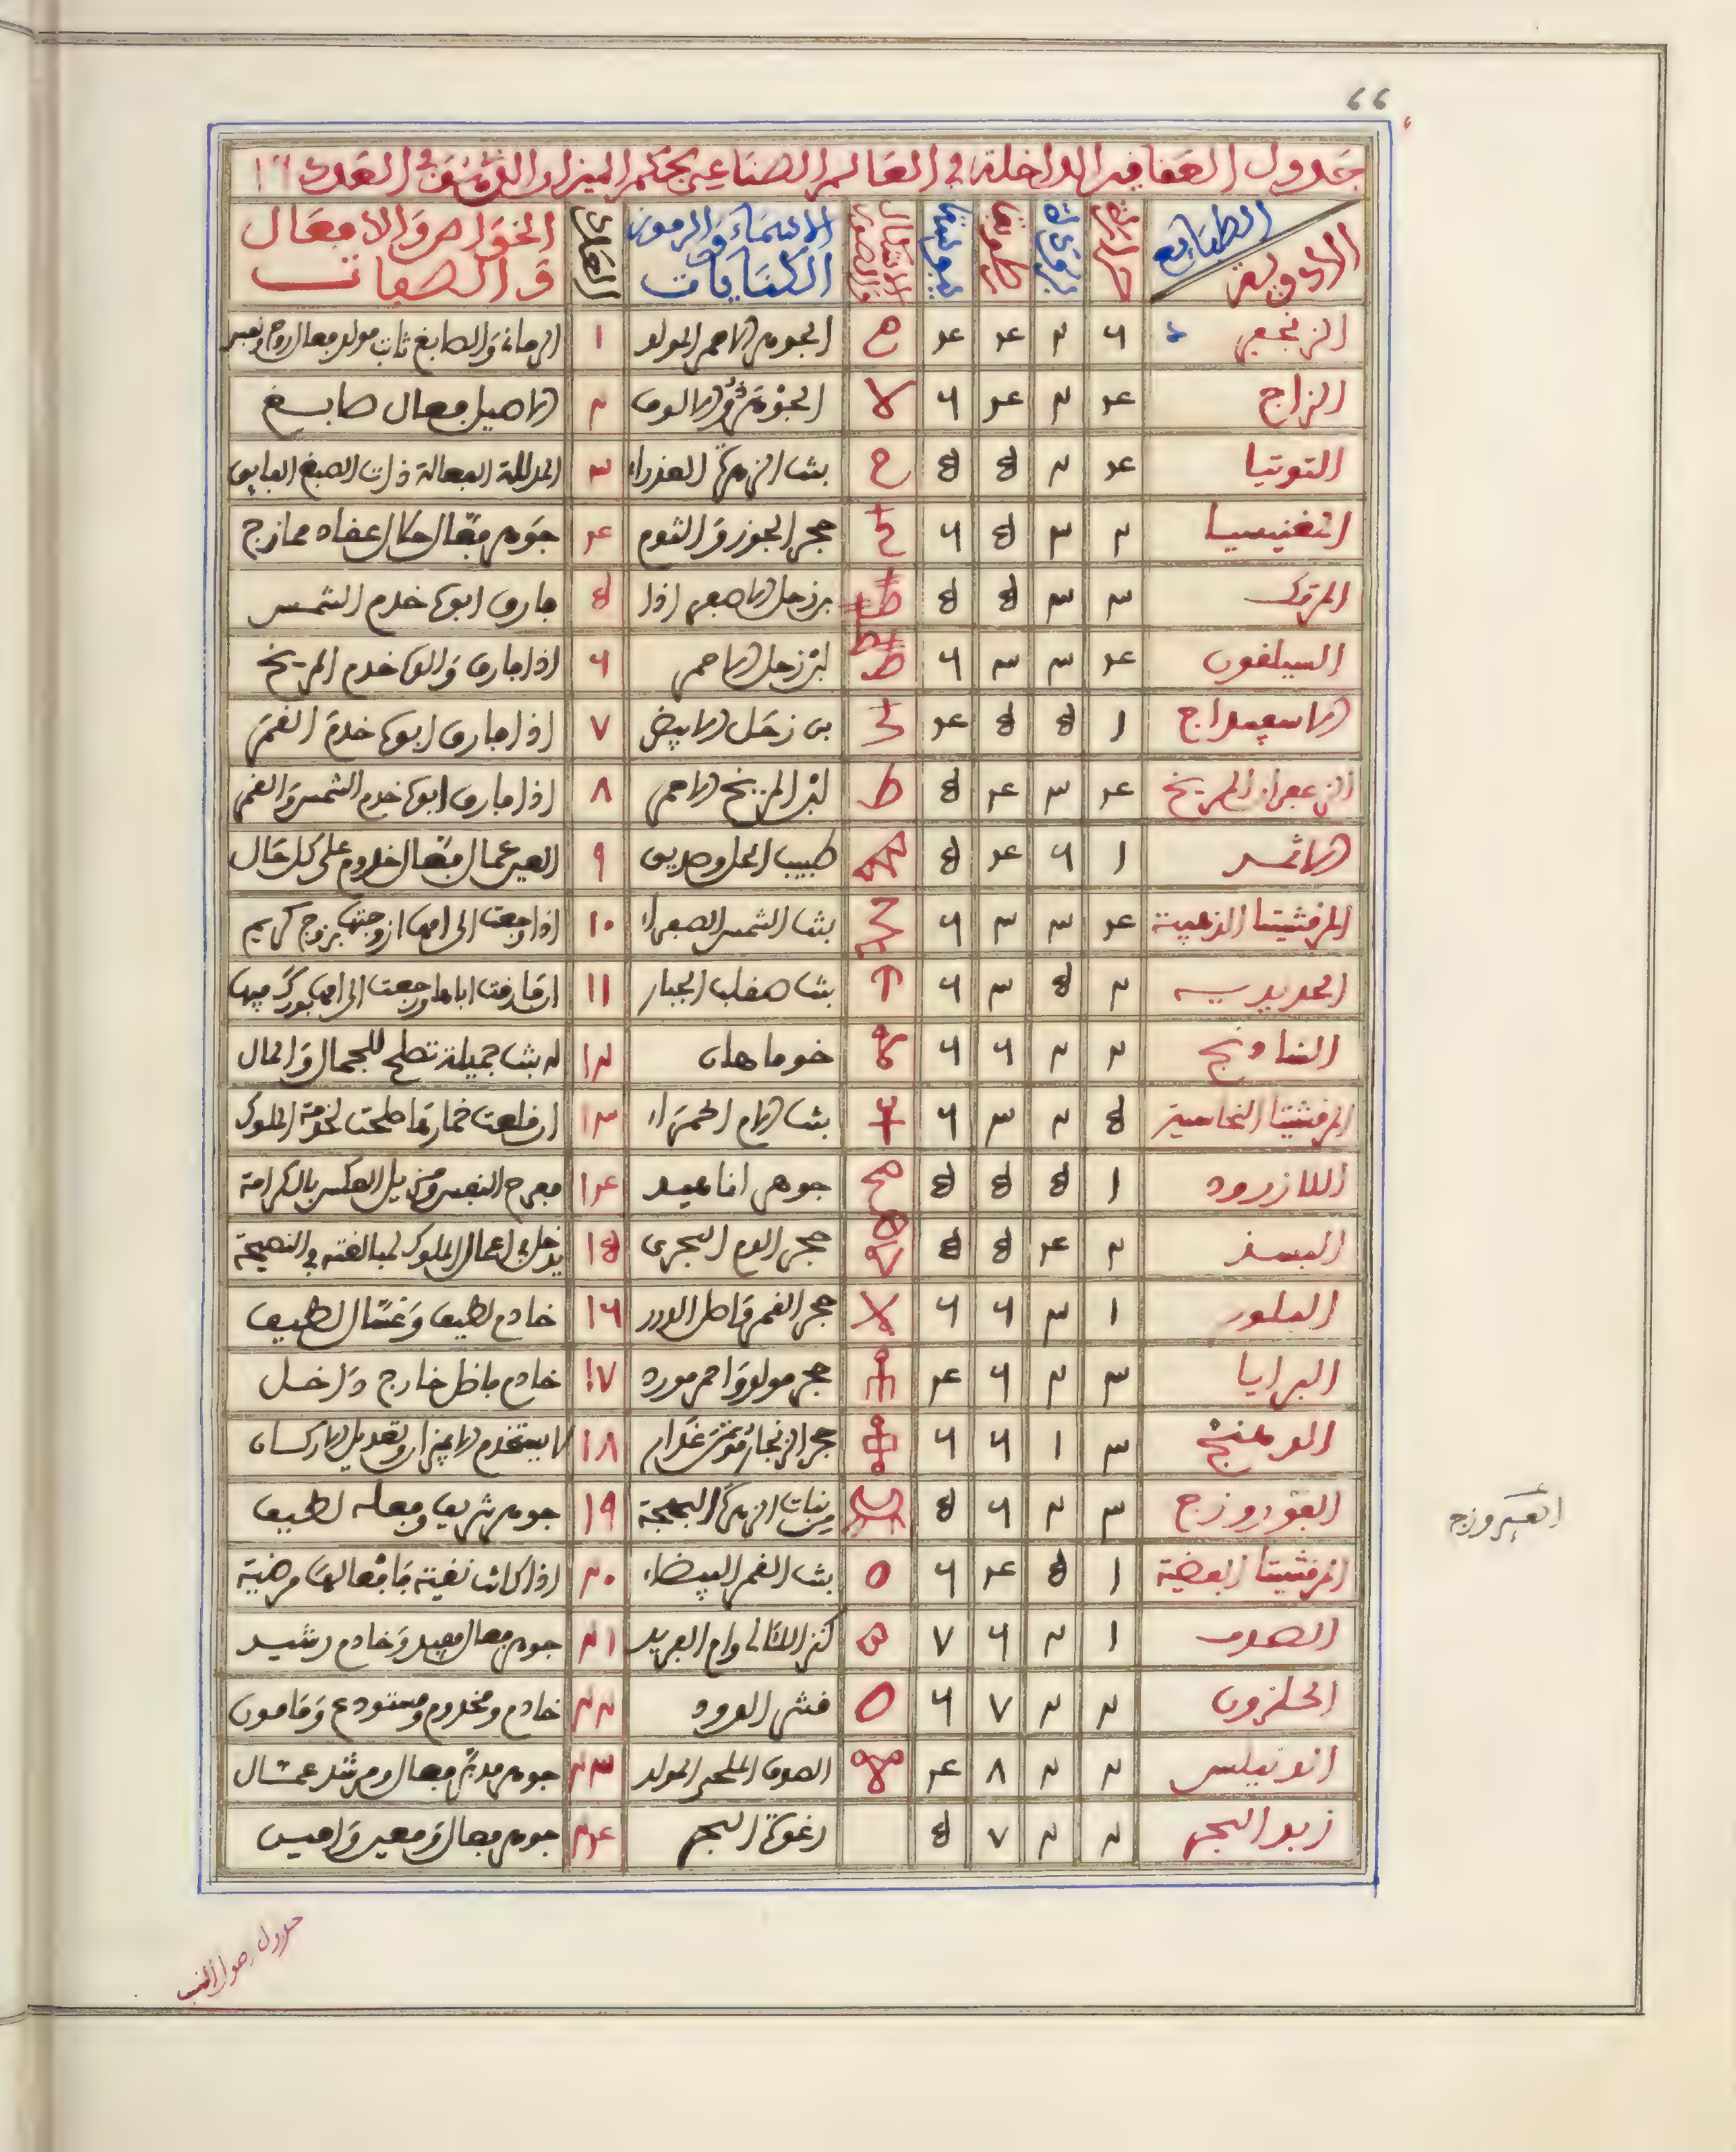 ٦٦
جدول العقاقير الداخلة في العالم الصناعي بحكم الميزان في العدد
الطبايع الادوية حرارة برودة رطوبة يبوسة الاشكال والصور الاسماء والرموز والكنايات العدد الخواص والافعال والصفات
الزنجفر ٦ ٢ ٤ ٤ الجوهر الاحمر المولد ١ والصابغ ثابت مولد فعال
الزاج ٤ ٢ ٤ ٦ ٢ الاصيل فعال صابغ
التوتيا ٤ ٢ ٥ ٥ بنت الزهرة العذراء ٣ المدللة الفعالة ذات الصبغ الفايق
المغنيسيا ٢ ٣ ٥ ٦ حجر الجوز والثوم ٤ جوهر فعال ممازج
المرتك ٣ ٣ ٥ ٥ بن زحل الاصفر اذا ٥ فارق ابوه خدم الشمس
السيلقون ٤ ٣ ٣ ٦ ابن زحل الاحمر ٦ اذا فارق والده خدم المريخ
الاسفيداج ١ ٥ ٥ ٤ بن زحل الابيض ٧ اذا فارق ابوه خدم القمر
الزعفران المريخ ٤ ٣ ٤ ٥ ابن المريخ الاحمر ٨ اذا فارق ابوه خدم الشمس والقمر
الاثمد ١ ٦ ٤ ٥ طبيب الحل وصديق ٩ العين عمال فعال خدوم على كل حال
المرقشيتا الذهبية ٤ ٣ ٣ ٦ بنت الشمس الصفراء ١٠ اذا رجعت الى امها ازوجتها بزوج كريم
الحديدية ٢ ٥ ٣ ٦ بنت صقلب الجبار ١١ ان فارقت اباها ورجعت الى امها بورك فيها
الشادنج ٢ ٢ ٦ ٦ خوماهان ١٢ له بنت جميلة تصلح للجمال والمال
المرقشيتا النحاسية ٥ ٢ ٣ ٦ بنت الام الحمراء ١٣ ان خلعت خمارها صلحت لخدمة الملوك
اللازورد ١ ٥ ٥ ٥ جوهر اناهيد ١٤ مفرح النفس ومزيل العكس بالكرامة
البسد ٢ ٤ ٥ ٥ حجر الدم البحري ١٥ يدخل في اعمال الملوك لمبالغته في النصيحة
البلور ١ ٣ ٦ ٦ حجر القمر قاطل الدرر ١٦ خادم لطيف وغسال لطيف
البرايا ٣ ٢ ٦ ٤ حجر مولد واحمر مورد ١٧ خادم فاضل خارج داخل
الدهنج ٣ ١ ٦ ٦ حجر الزنجار مؤنث غدار ١٨ لا يستخدم
الفوروزج ٣ ٢ ٦ ٥ من بنات الزهرة البهيجة ١٩ جوهر شريف وفعله لطيف
الفيروزج
المرقشيتا الفضية ١ ٥ ٤ ٦ بنت القمر البيضاء ٢٠ اذا كانت نقية فافعالها مرضية
الصدف ١ ٢ ٦ ٧ كنز اللئالي وام الفريد ٢١ جوهر فعال مفيد وخادم رشيد
الحلزون ٢ ٢ ٧ ٦ قشر الدود ٢٢ خادم ومخدوم ومستودع ومامون
اندنيلس ٢ ٢ ٨ ٤ الصدف الملحي المولد ٢٣ جوهر مدبر فعال ومرشد عمال
زبد البحر ٢ ٢ ٧ ٥ رغوة البحر ٢٤ جوهر فعال ومعين وانيس
جدول